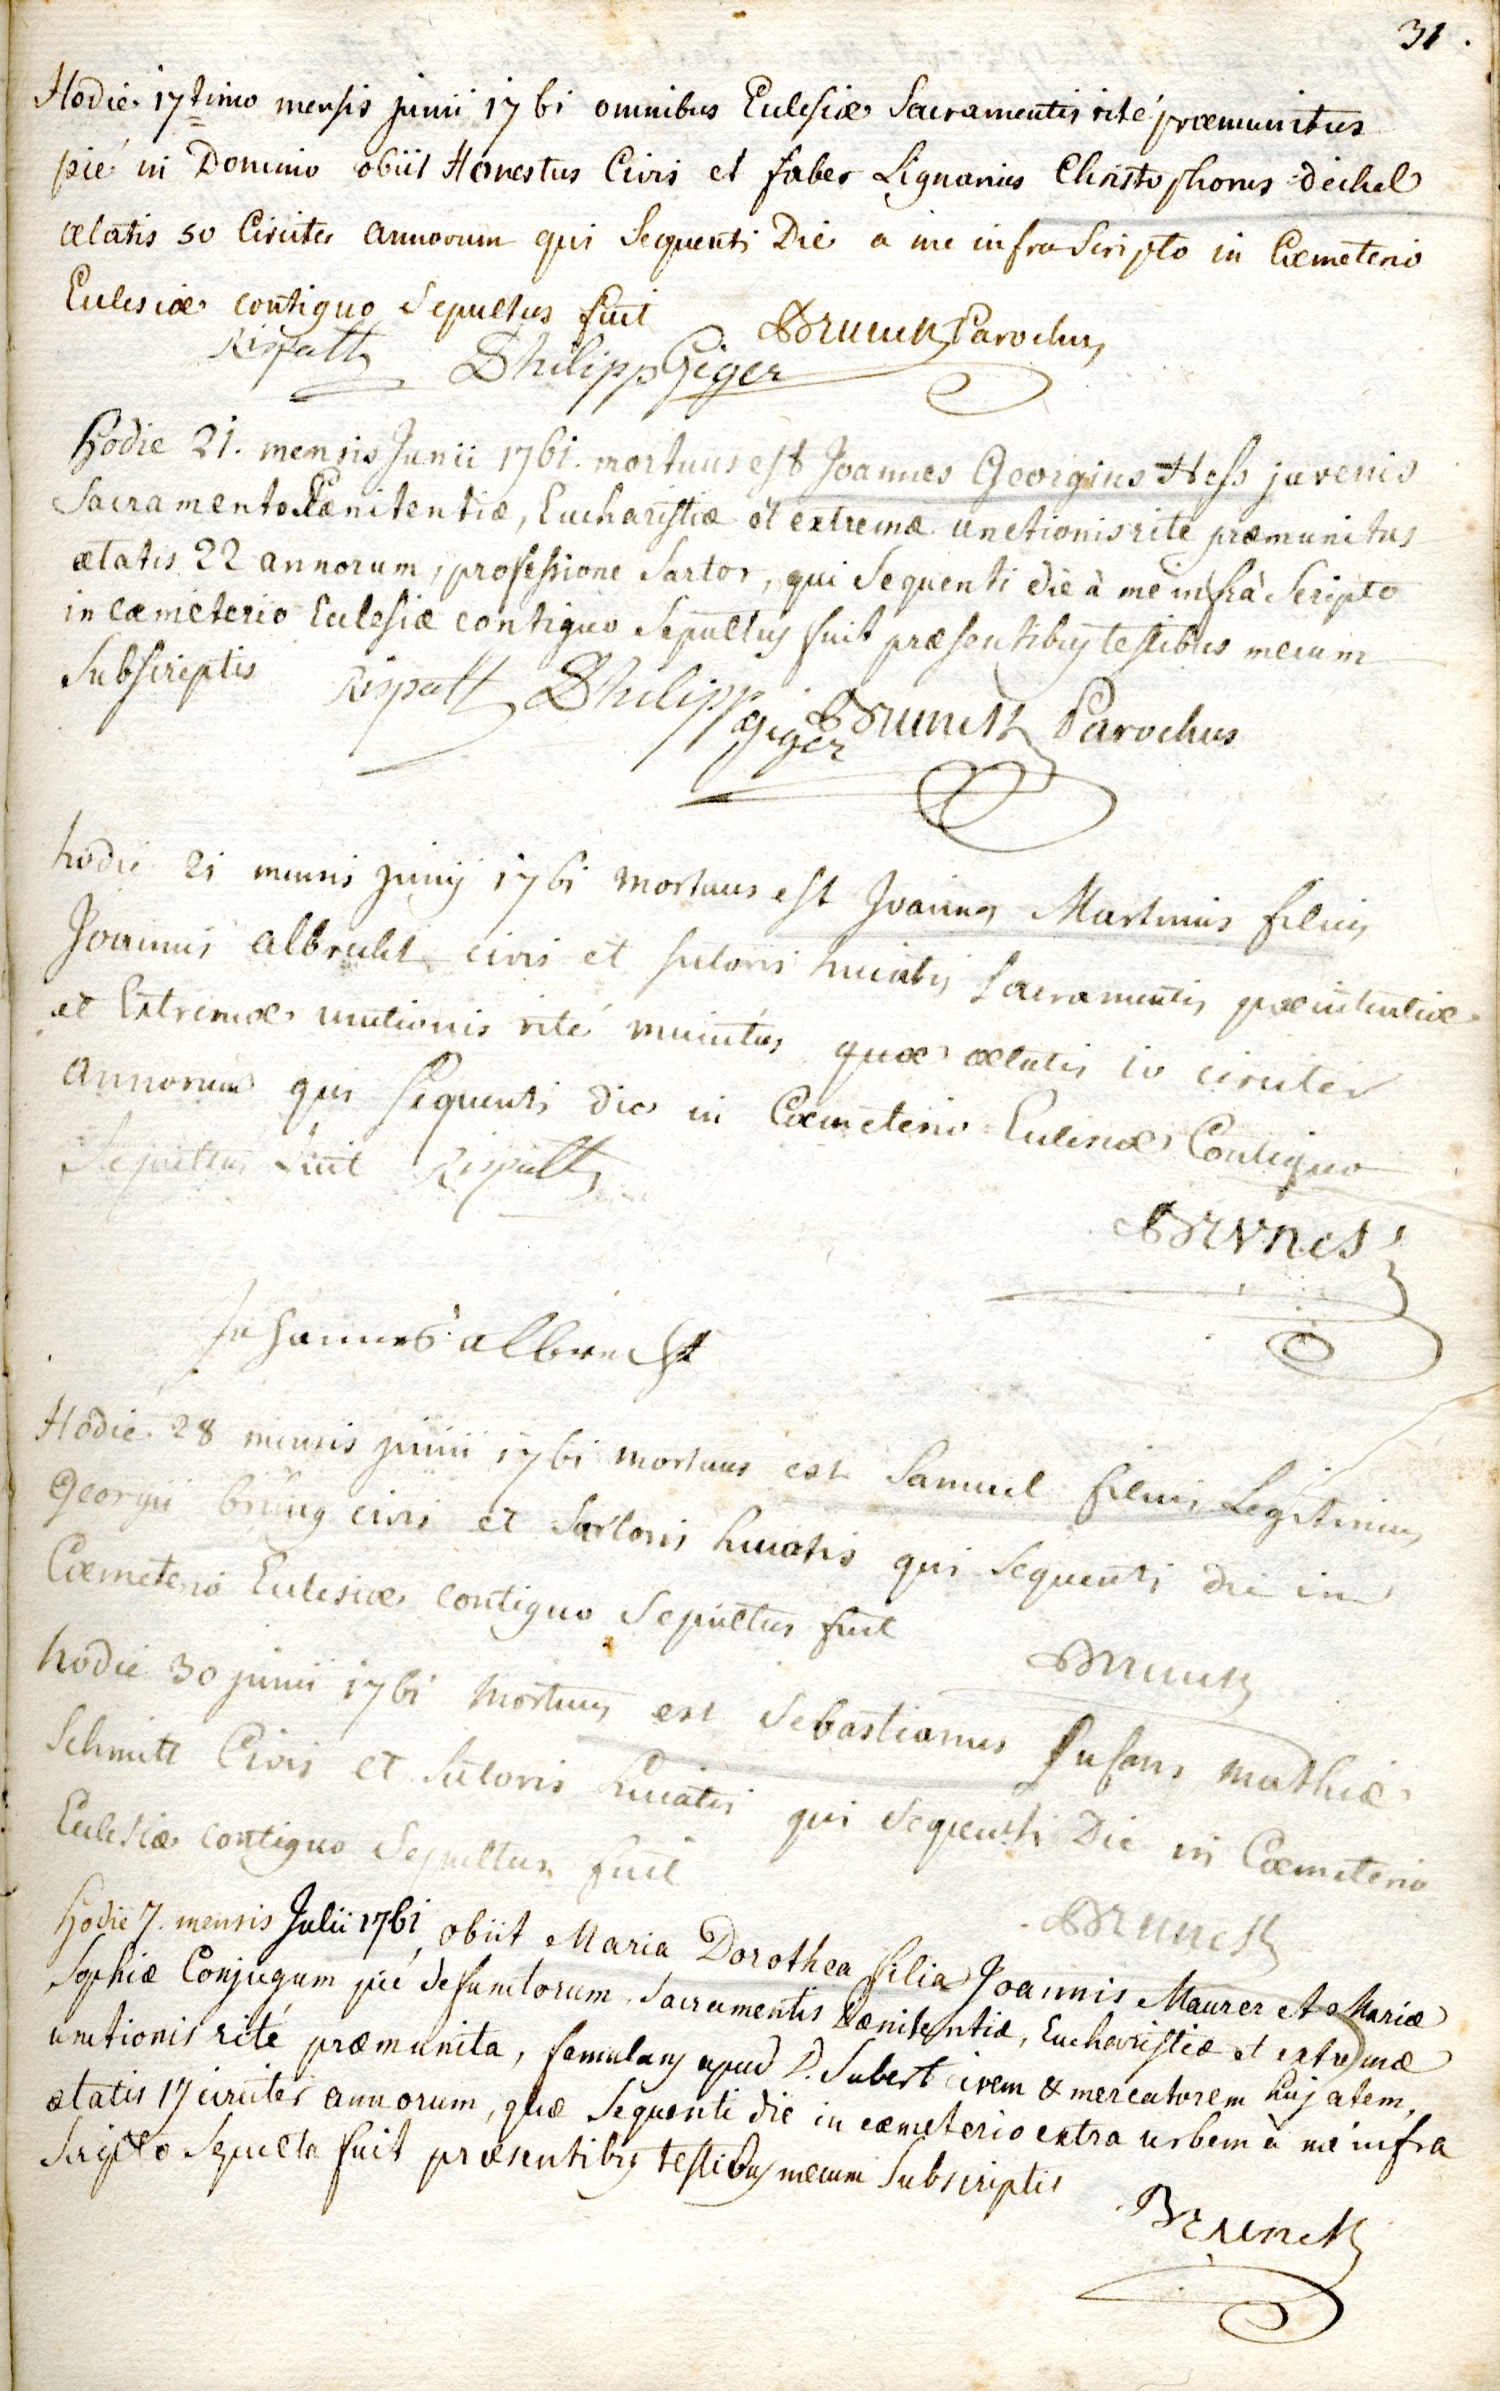 31.
Hodie 17timo mensis junii 1761 omnibus Eclesiæ Sacramentis rité præmunitus
pié in Domino obiit Honestus Civis et faber Lignarius Christophorus dechel
ætatis 50 Circiter annorum qui Sequenti Die a me infra Scripto in Cœmeterio
Eclesiæ contiguo Sepultus fuit Brunck Parochus
Rispatt Philipp Giger
Hodie 21. mensis Junii 1761. mortuus est Joannes Georgius Hess juvenis
Sacramento Pænitentiæ, Eucharistiæ et extremæ unctionis rite præmunitus
ætatis 22 annorum, professione Sartor, qui Sequenti die à me infrà Scripto
in cæmeterio Eclesiæ contiguo Sepultus fuit præsentibus testibus mecum
Subscriptis Rispatt Philipp Giger Brunck Parochus
hodie 21 mensis junij 1761 mortuus est Joannes Martinus filius
Joannis albrecht civis et sutoris huiatis Sacramentis pœnitentiæ
et Extremæ unctionis rité munitus quæ ætatis 10 circiter
annorum qui Sequenti die in Cœmeterio Eclesiæ Contiguo
Sepultus fuit Rispatt
Brunck
Johannes albrecht
Hodie 28 mensis junii 1761 mortuus est Samuel filius Legitimus
Georgii civis et Sartoris huiatis qui Sequenti die in
Cœmeterio Eclesiæ contiguo Sepultus fuit
Brunck
hodie 30 junii 1761 Mortuus est Sebastianus Infans Mathiæ
Schmitt Civis et Sutoris huiatis qui Sequenti Die in Cœmeterio
Eclesiæ contiguo Sepultus fuit
Brunck
Hodie 7. mensis Julii 1761 obiit Maria Dorothea filia Joannis Maurer et Mariæ
Sophiæ Conjugum pié defunctorum Sacramentis Pænitentiæ, Eucharistiæ et extremæ
unctionis rité præmunita, famulans apud D. Subert civem & mercatorem hujatem,
ætatis 17 circiter annorum, quæ Sequenti die in cæmeterio extra urbem à me infra
Scripto Sepulta fuit præsentibus testibus mecum Subscriptis
Brunck